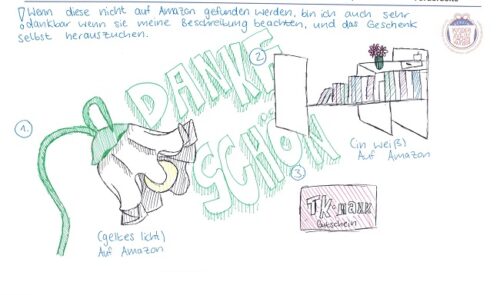 ! Wenn diese nicht auf Amazon gefunden werden, bin ich auch sehr
dankbar wenn sie meine Beschreibung beachten, und das Geschenk
selbst herauszuchen.
DANKE
SCHÖN
1.
2
3
(in weiß)
Auf Amazon
TK-maxx
Gutschein
(gelbes licht)
Auf Amazon